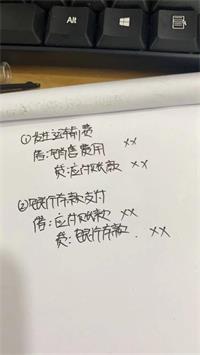 Alt
①发生运输费
借:销售费用 xx
贷:应付账款 xx
②银行存款支付
借:应付账款 xx
贷:银行存款 xx